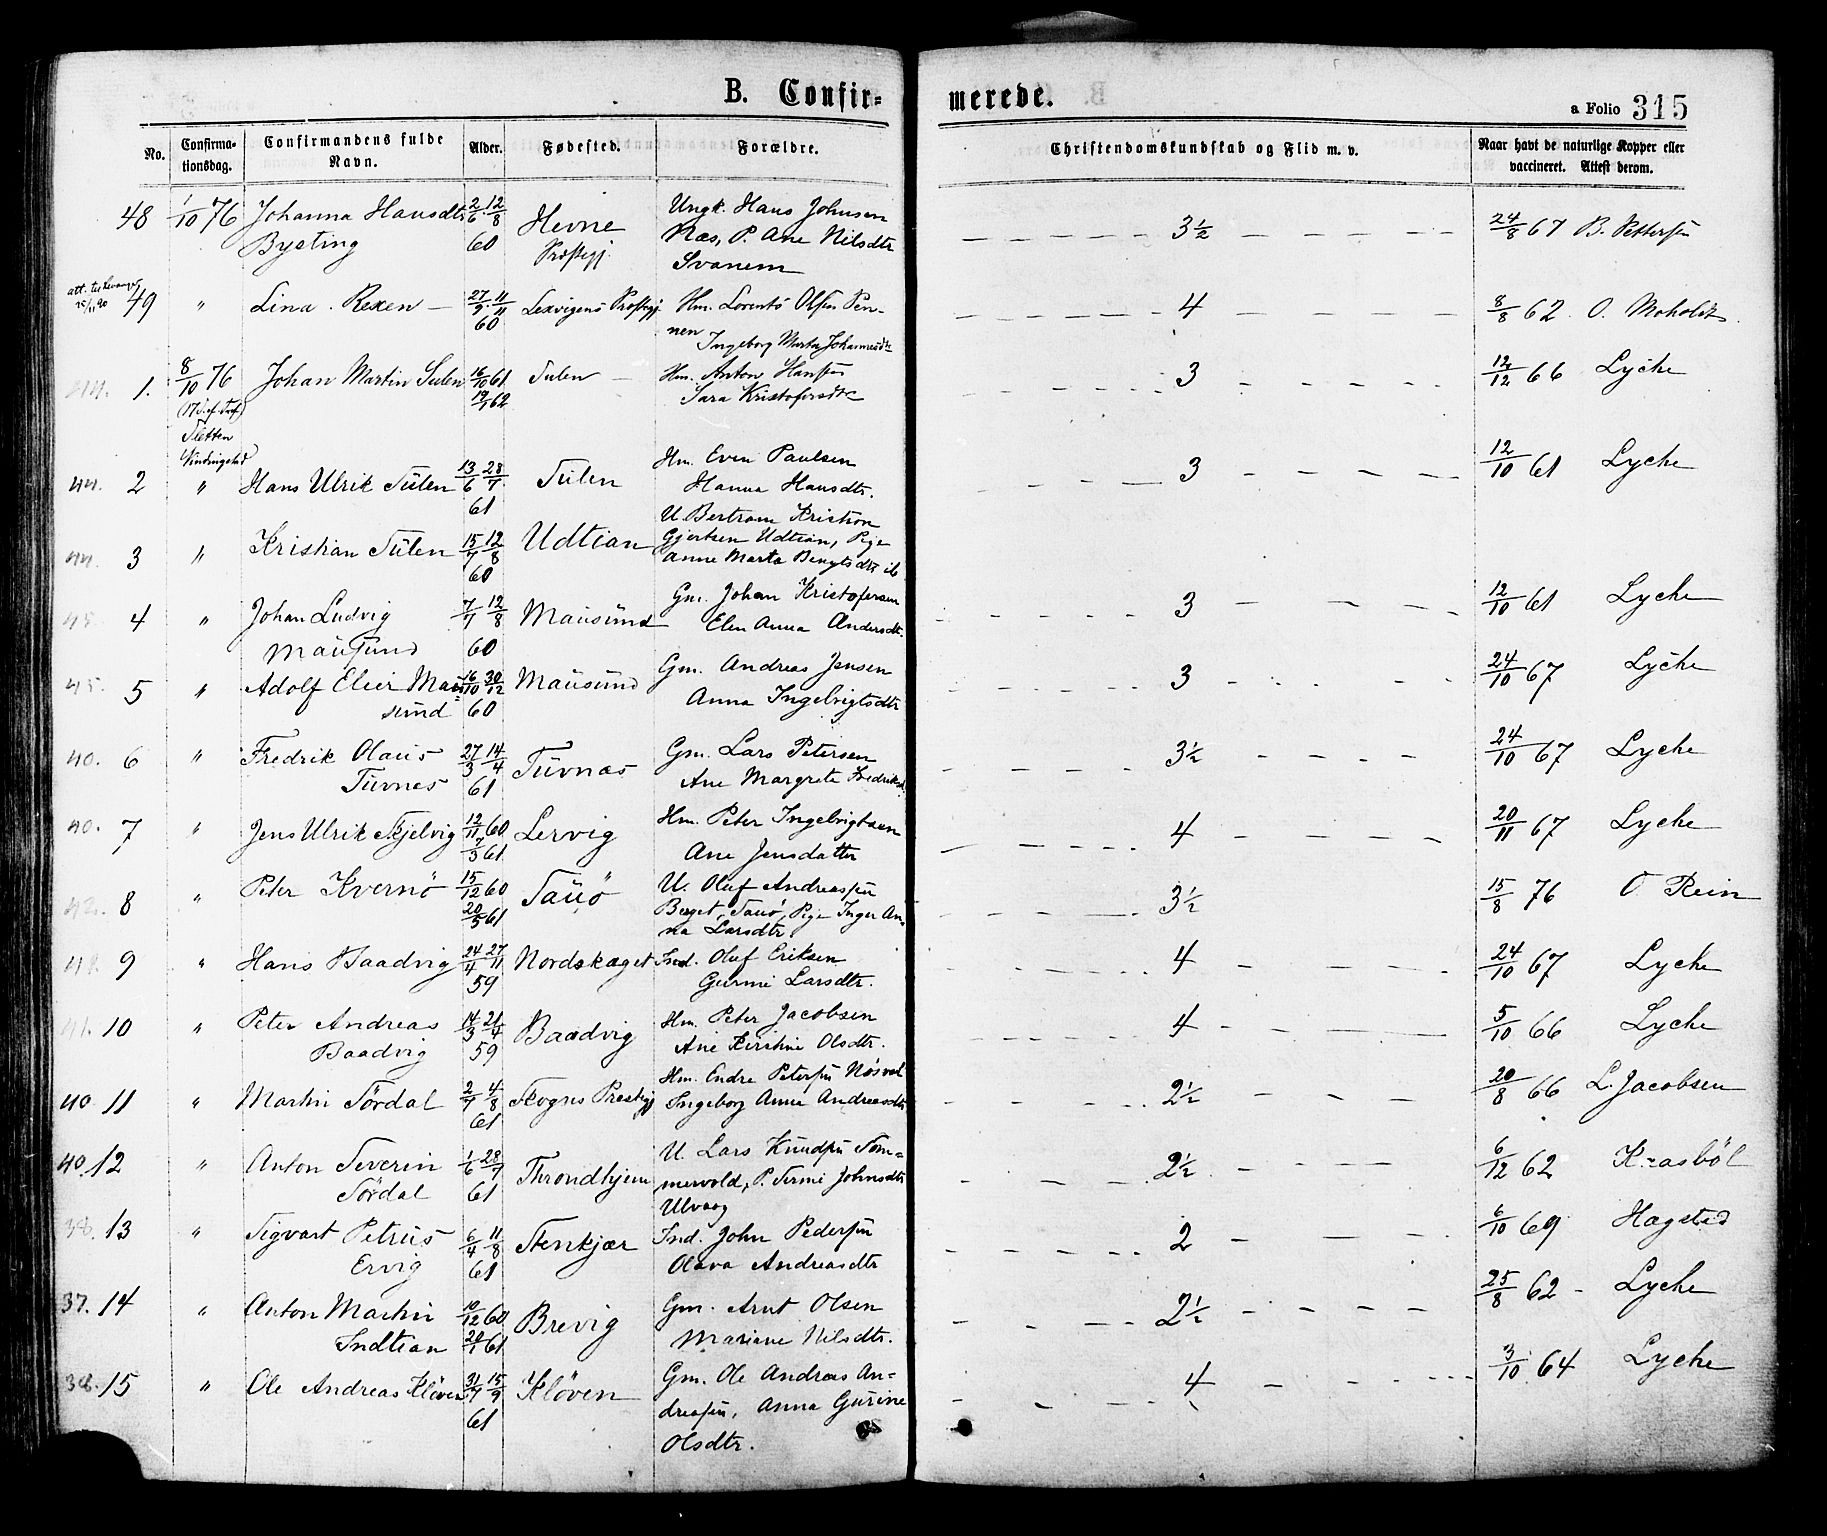 B. Confir-
merede.
a Folio 315
No.
Confirma-
tionsdag.
Confirmandens fulde
Navn.
Alder.
Fødested.
Forældre.
Christendomskundskab og Flid m. v.
Naar havt de naturlige Kopper eller
vaccineret. Attest derom.
48 1/10 76 Johanna Hansdtr 2/6 12/8 Hevne Ungk. Hans Johnsen 3½ 24/8 67 B. Pettersen
Bysting 60 Præstegj. Næs, P. Ane Nilsdtr
Svanem
att.
25/11 90
49 " Lina Rexen — 27/9 11/11 Lexvigens Præstegj. Hm. Lorents Olsen Pen- 4 8/8 62 O. Moholdt
60 nen
Ingeborg Marta Johannesdtr
44. 1. 8/10 76 Johan Martin Sulen 16/10 61 Sulen — Hm. Anton Hansen 3 12/12 66 Lyche
19/1 62 Sara Kristofersdtr
Sletten
2 " Hans Ulrik Sulen 13/6 28/7 Sulen Hm. Even Paulsen 3 12/10 61 Lyche
61 Hanna Hansdtr.
44. 3 " Kristian Sulen 15/7 12/8 Udtian U. Bertram Kristian
60 Gjertsen Udtian, Pige
Anne Marta Bengtsdtr ib
45. 4 " Johan Ludvig 7/7 12/8 Mausund Gm. Johan Kristofersen 3 12/10 61 Lyche
Mausund 60 Elen Anna Andersdtr.
45. 5 " Adolf Elier Mau- 16/10 30/12 Mausund Gm. Andreas Jensen 3 24/10 67 Lyche
sund 60 Anna Ingebrigtsdtr
40. 6 " Fredrik Olaus 27/3 14/4 Tuvnæs Gm. Lars Petersen 3½ 24/10 67 Lyche
Tuvnes 61 Ane Margrete Fredriksd.
40. 7 " Jens Ulrik Skjelvig 12/11 60 Lervig Hm. Peter Ingebrigtsen 4 20/11 67 Lyche
7/3 61 Ane Jensdatter
42. 8 " Peter Kvernö 15/12 60 Sauö U. Oluf Andreassen 3½ 15/8 76 O Rein
20/5 61 Berget, Sauö, Pige Inger An-
na Larsdtr.
9 " Hans Baadvig 24/4 27/11 Nordskaget Ind. Oluf Eriksen 4 24/10 67 Lyche
59 Gurine Larsdtr.
41. 10 " Peter Andreas 14/3 21/4 Baadvig Hm. Peter Jacobsen 4 5/10 66 Lyche
Baadvig 59 Ane Kirstine Olsdtr.
40. 11 " Martin Sördal 2/7 4/8 Skogns Præstegj Hm. Endre Petersen Nösvol 2½ 20/8 66 L. Jacobsen
61 Ingeborg Anna Andreasdtr
40. 12 " Anton Severin 1/6 28/7 Throndhjem U. Lars Knudsen Som- 2½ 6/12 62 Krasböl
Sördal 61 mervold, P. Serine Johnsdtr
Ulvaag
38. 13 " Sigvart Petrus 6/4 11/8 Stenkjær Ind. John Pedersen 2 6/10 69 Hagsted
Ervig 61 Olava Andreasdtr
37. 14 " Anton Martin 10/12 60 Brevig Gm. Arnt Olsen 2½ 25/8 62 - Lyche
Indtian 20/1 61 Mariane Nilsdtr.
38. 15 " Ole Andreas Klöven 31/7 15/9 Klöven Gm. Ole Andreas An- 4 3/10 64 Lyche
61 dreasen, Anna Gurine
Olsdtr.